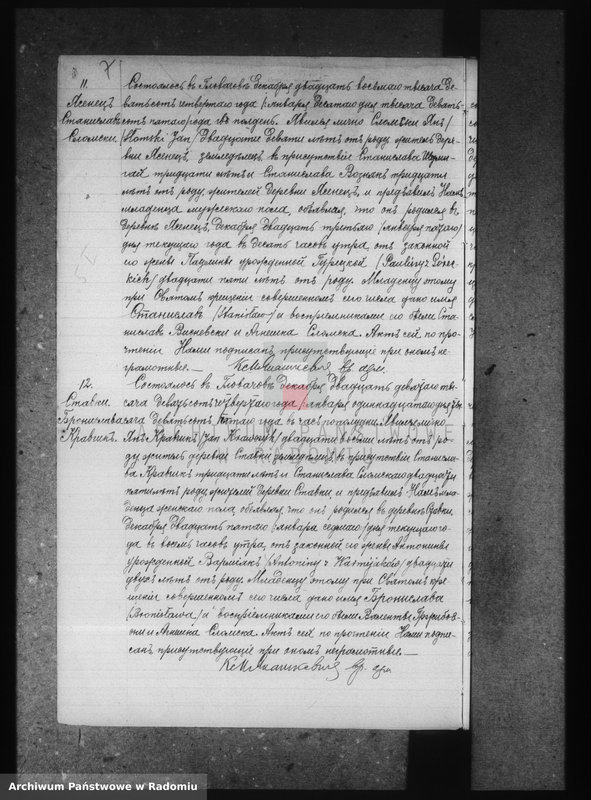 7
11.
Ясенецъ
Станиславъ
Сломски
Состоялось в Гловачовѣ Декабря двадцать восьмаго тысяча де-
вятьсотъ четвертаго года /Января десятаго дня тысяча девять-
сотъ пятаго года въ полдень. Явился лично Сломски Янъ/
/Słomski Jan/ двадцати девяти лѣтъ отъ роду, житель дере-
вни Ясенецъ, земледѣлецъ, в присутствіе Станислава
тридцати лѣтъ и Станислава Вознякъ тридцати
лѣтъ отъ роду, жителей деревни Ясенецъ, и предъявилъ Намъ
младенца мужескаго пола, объявляя, что онъ родился въ
деревнѣ Ясенецъ, Декабря двадцать третьяго /Января пятаго/
дня текущаго года въ десять часовъ утра, отъ законной
его жены Паулины урожденной Гурецкой /Pauliny z Górec-
kich/ двадцати пяти лѣтъ отъ роду. Младенцу этому
при Святомъ крещеніи совершенномъ сего числа дано имя
Станиславъ /Stanisław/ и воспріемниками его были Ста-
ниславъ Висневски и Агнешка Сломска. Актъ сей по про-
чтеніи Нами подписанъ, присутствующіе при ономъ не-
грамотные.—
12.
Ставки
Бронислава
Кравчикъ
Состоялось в Гловачовѣ Декабря двадцать девятаго ты-
сяча девятьсотъ четвертаго года /Января одиннадцатаго дня ты-
сяча девятьсотъ пятаго года въ часъ пополудни. Явился лично
Янъ Кравчикъ /Jan Krawczyk/ двадцати восьми лѣтъ отъ ро-
ду житель деревни Ставки земледѣлецъ, в присутствіи Станисла-
ва Кравчикъ тридцати лѣтъ и Станислава Сломскаго двадцати
пяти лѣтъ роду, жителей деревни Ставки, и предъявилъ Намъ мла-
денца женскаго пола, объявляя, что онъ родился въ деревнѣ Ставки,
Декабря двадцать пятаго /Января седьмаго/ дня текущаго го-
да въ восемь часовъ утра, отъ законной его жены Антонины
урожденной Вармiякъ /Antoniny z / двадцати
двухъ лѣтъ отъ роду. Младенцу этому при Святомъ кре-
щеніи совершенномъ сего числа дано имя Бронислава
/Bronisława/ и воспріемниками его были Валенты
и Агнешка Сломска. Актъ сей по прочтеніи Нами подпи-
санъ, присутствующіе при ономъ неграмотные.—
Archiwum Państwowe w Radomiu